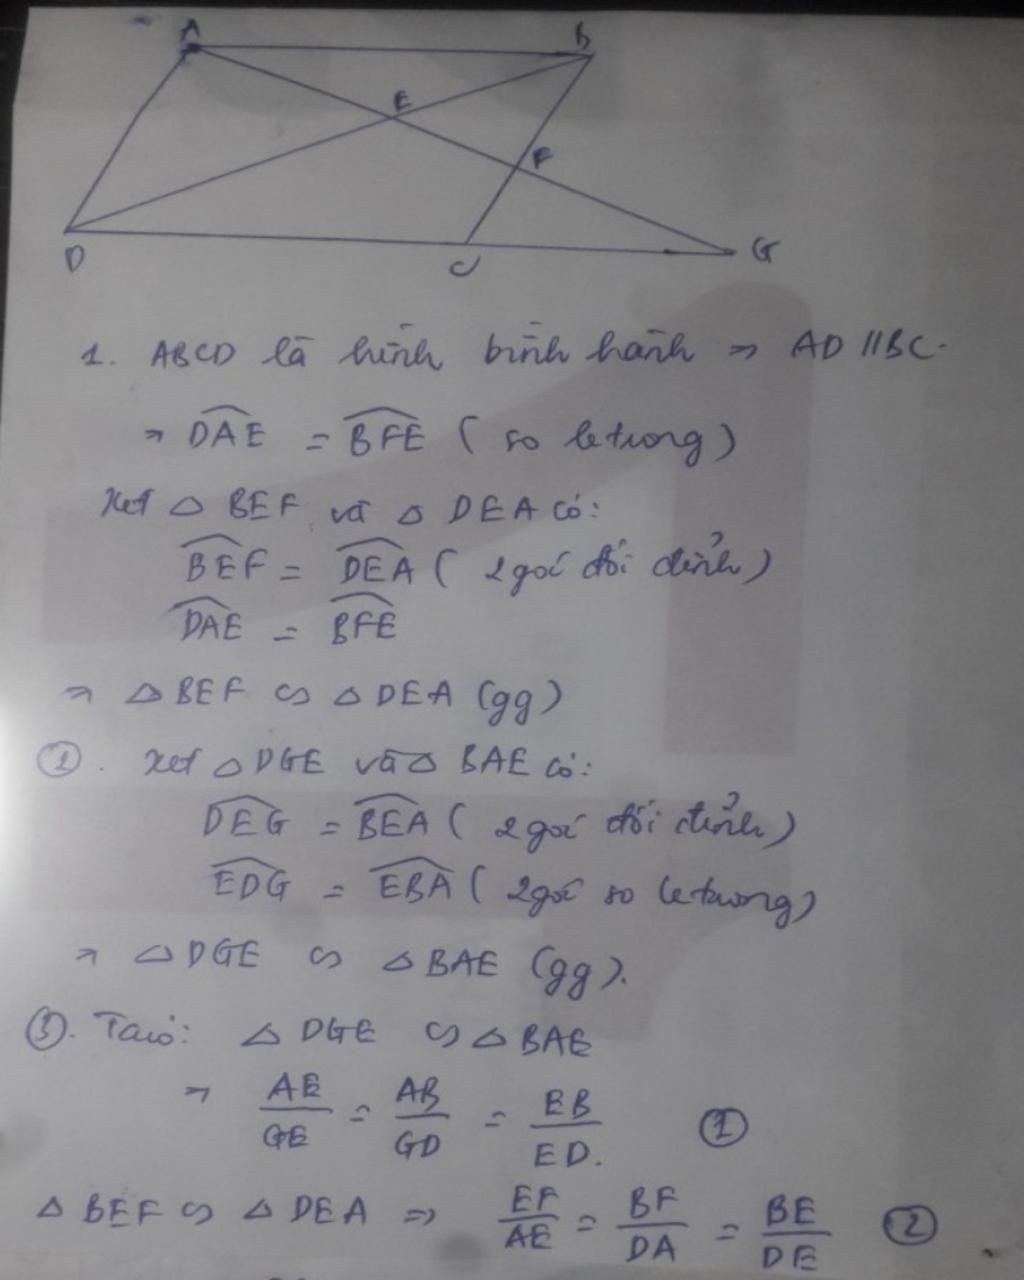 A B
E
F
D C G
1. ABCD là hình bình hành => AD // BC.
=> DAE = BFE ( so le trong )
Xét △ BEF và △ DEA có:
BEF = DEA ( 2 góc đối đỉnh )
DAE = BFE
=> △ BEF ∽ △ DEA (gg)
②. Xét △ DGE và △ BAE có:
DEG = BEA ( 2 góc đối đỉnh )
EDG = EBA ( 2 góc so le trong )
=> △ DGE ∽ △ BAE (gg).
③. Ta có: △ DGE ∽ △ BAE
=> AE/GE = AB/GD = EB/ED. ①
△ BEF ∽ △ DEA => EF/AE = BF/DA = BE/DE ②